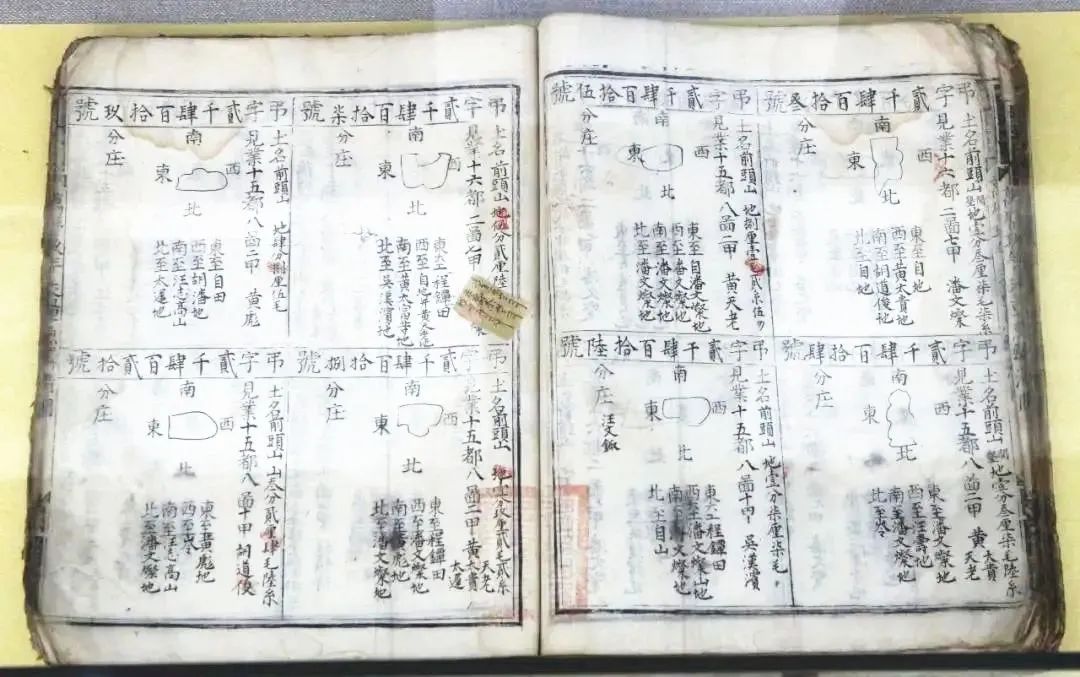 弔字貳千肆百拾叁號
土名前頭山 地壹分叁厘柒毛柒系
見業十六都二啚七甲 潘文燦
西
南
北
東
東至自地
西至黄太貴地
南至詞道俊地
北至自地
分庄
弔字貳千肆百拾肆號
土名前頭山 地壹分叁厘柒毛陸系
見業十五都八啚二甲 黄太貴
天老
西
南
北
東
東至潘文燦地
西至汪壽地
南至潘文燦地
北至岺
分庄
弔字貳千肆百拾伍號
土名前頭山 地捌厘壹毛貳系伍勿
見業十五都八啚二甲 黄天老
西
南
北
東
東至自潘文燦地
西至潘文燦地
南至潘文燦地
北至潘文燦地
分庄
弔字貳千肆百拾陸號
土名前頭山 地壹分柒厘柒毛
見業十五都八啚十四 吳漢濱
西
南
北
東
東至程鏜田
西至潘文燦山地
南至潘文燦地
北至自山
分庄
汪文
弔字貳千肆百拾柒號
土名前頭山 地伍分貳厘陸
見業十六都二啚七甲
西
南
北
東
東至程鏜田
西至自地并黄天老地
南至黄太富等地
北至吳漢濱地
分庄
弔字貳千肆百拾捌號
土名前頭山 地壹分伍厘貳毛貳系
見業十五都八啚二甲 黄太貴
天老
太運
西
南
北
東
東至程鏜田
西至潘文燦地
南至黄彪地
北至潘文燦地
分庄
弔字貳千肆百拾玖號
土名前頭山 地肆分捌厘伍毛
見業十五都八啚二甲 黄彪
西
南
北
東
東至自田
西至詞潘地
南至汪毛高山
北至太運地
分庄
弔字貳千肆百貳拾號
土名前頭山 山叁分貳厘肆毛陸系
見業十五都八啚十甲 詞道俊
西
南
北
東
東至黄彪地
西至岺
南至汪毛高山
北至潘文燦地
分庄